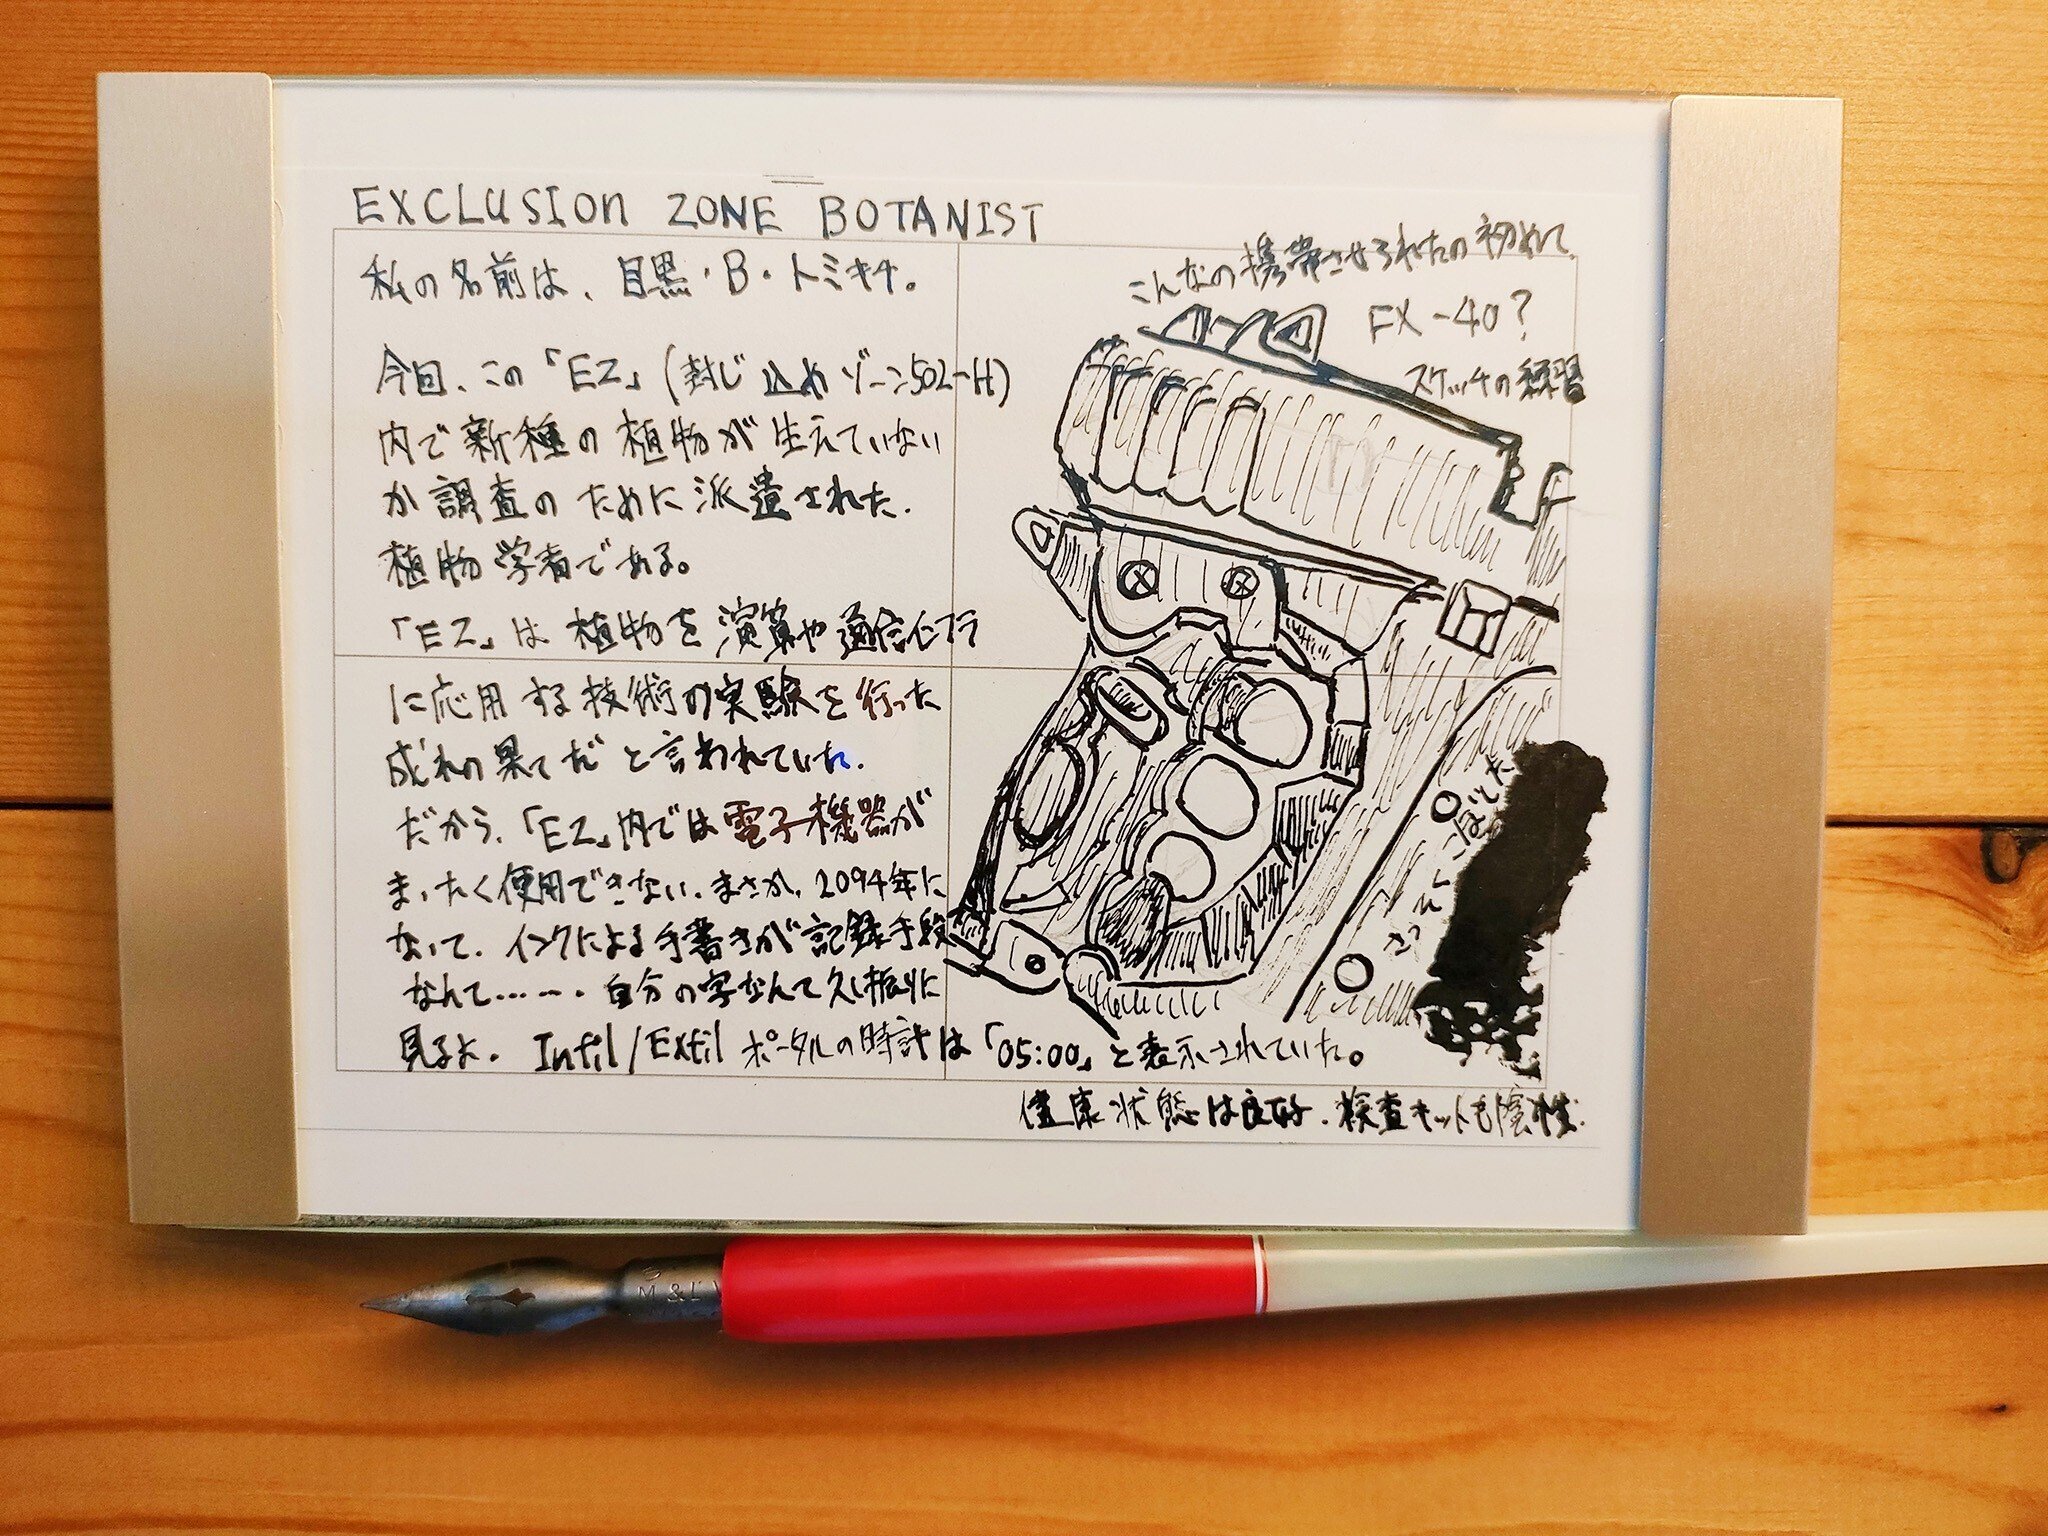 EXCLUSION ZONE BOTANIST
私の名前は、目黒・B・トミキチ。
今回、この「EZ」(封じ込めゾーン502-H)
内で新種の植物が生えていない
か調査のために派遣された.
植物学者である。
「EZ」は植物を演算や通信インフラ
に応用する技術の実験を行った
成れの果てだと言われていた.
だから、「EZ」内では電子機器が
まったく使用できない.まさか、2094年に
なって.インクによる手書きが記録手段
なんて……. 自分の字なんて久し振りに
見るよ. Infil/Exfil ポータルの時計は「05:00」と表示されていた。
健康状態は良好.検査キットも陰性.
こんなの携帯させられたの初めて.
FX-40?
スケッチの練習
さっそくこぼした
M&